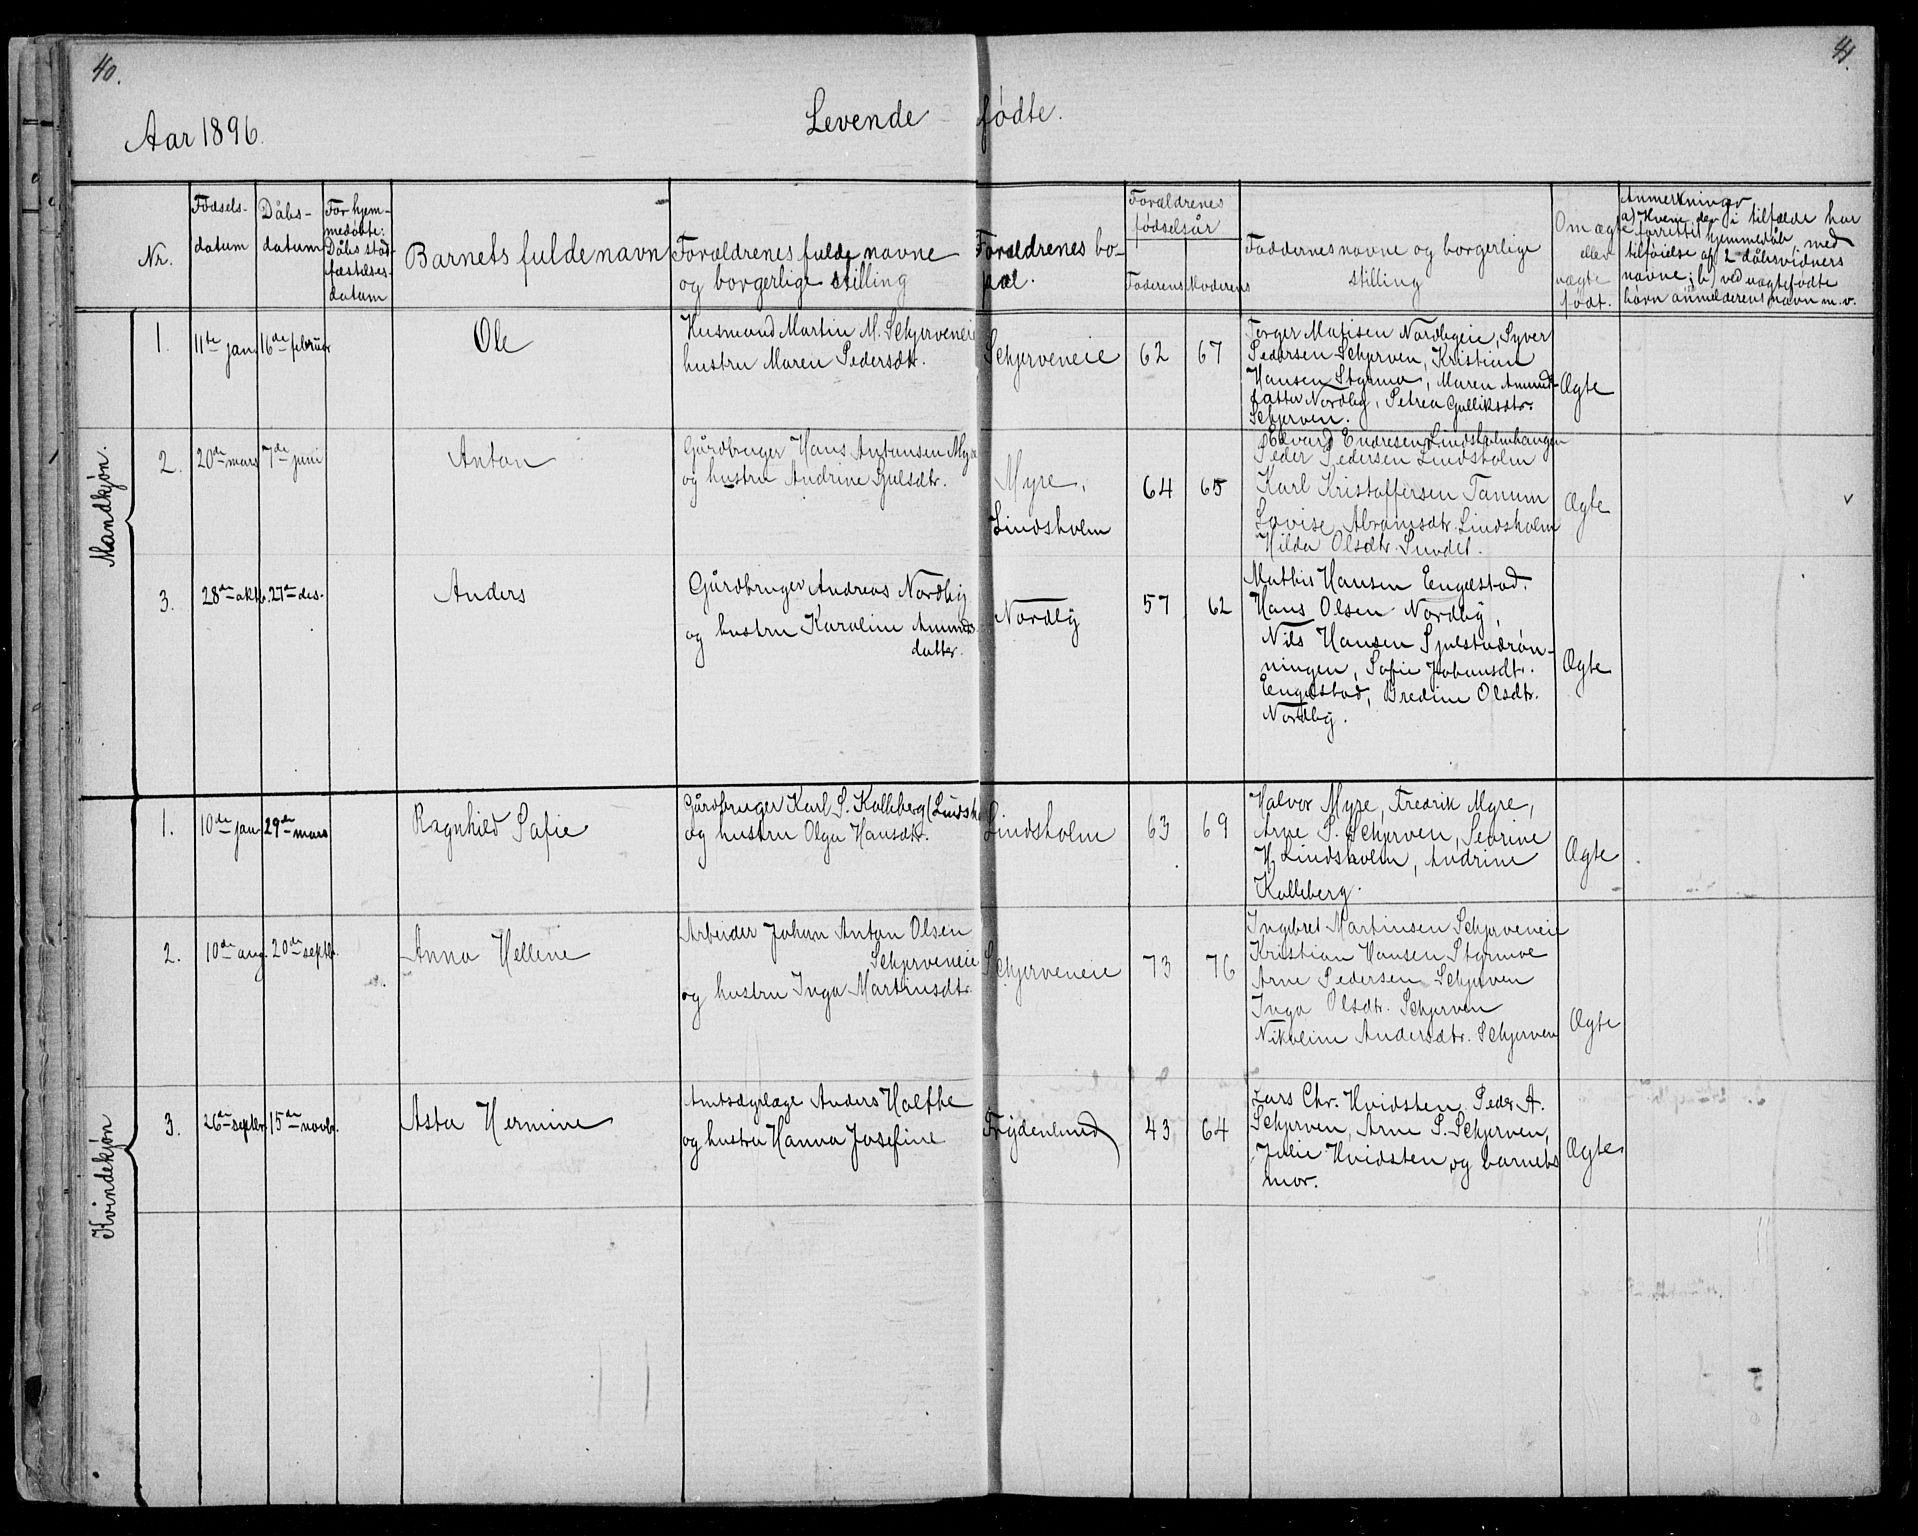 40.
41.
Aar 1896.
Levende fødte.
Nr.
Fødsels-
datum
Dåbs-
datum
For hjem-
medøbte:
Dåbs stad-
fæstelses-
datum
Barnets fulde navn
Forældrenes fulde navne
og borgerlige stilling
Forældrenes bo-
pæl.
Forældrenes
fødselsår
Faderens
Moderens
Faddernes navne og borgerlige
stilling
Om ægte
eller
uægte
født.
Anmerkninger
a) Hvem der i tilfælde har
forrettet hjemmedåb, med
tilføielse af 2 dåbsvidners
navne; b) ved uægtefødte
børn anmelderens navn m. v.
Mandkjøn.
1.
11te jan
16de februar
Ole
Husmand Martin M. Schjerveneie
hustru Maren Pedersdtr.
Schjerveneie
62
67
Torger Matisen Nordbyeie, Syver
Pedersen Schjerven, Kristian
Hansen Styrmo, Maren Amund-
datter Nordby, Petrea Gulliksdtr.
Schjerven.
Ægte
2.
20de mars
7de juni
Anton
Gårdbruger Hans Antonsen Myre
og hustru Andrine Julsdtr.
Myre,
Lindsholm
64
65
Edvard Endresen Lindsholmhaugen
Peder Pedersen Lindsholm
Karl Kristoffersen Tanum
Lovise Abramsdtr. Lindsholm
Hilda Olsdtr. Sundet.
Ægte
3.
28de oktb.
27de des.
Anders
Gårdbruger Andreas Nordby
og hustru Karoline Amunds
datter.
Nordby
57
62
Mathis Hansen Engelstad.
Hans Olsen Nordby,
Nils Hansen Sjulstadrøn-
ningen, Sofie Johansdtr.
Engelstad, Bredine Olsdtr.
Nordby.
Ægte
Kvindekjøn
1.
10de jan
29de mars
Ragnhild Sofie
Gårdbruger Karl S. Kolleberg (Lindsh
og hustru Olga Hansdtr.
Lindsholm
63
69
Halvor Myre, Fredrik Myre,
Arne P. Schjerven, Severine
H. Lindsholm, Andrine
Kolleberg.
Ægte
2.
10de aug.
20de septb.
Anna Hellene
Arbeider Johan Anton Olsen
Schjerveneie
og hustru Inga Martinsdtr.
Schjerveneie
73
76
Ingebret Martinsen Schjerveneie
Kristian Hansen Styrmoe
Arne Pedersen Schjerven
Inga Olsdtr. Schjerven
Nikoline Andersdtr. Schjerven
Ægte
3.
26de septbr.
15de novbr.
Asta Hermine
Amtsdyrlæge Anders Holthe
og hustru Hanna Josefine
Frydenlund
43
64
Lars Chr. Hvidsten, Peder A.
Schjerven, Arne P. Schjerven,
Julie Hvidsten og barnets
mor.
Ægte